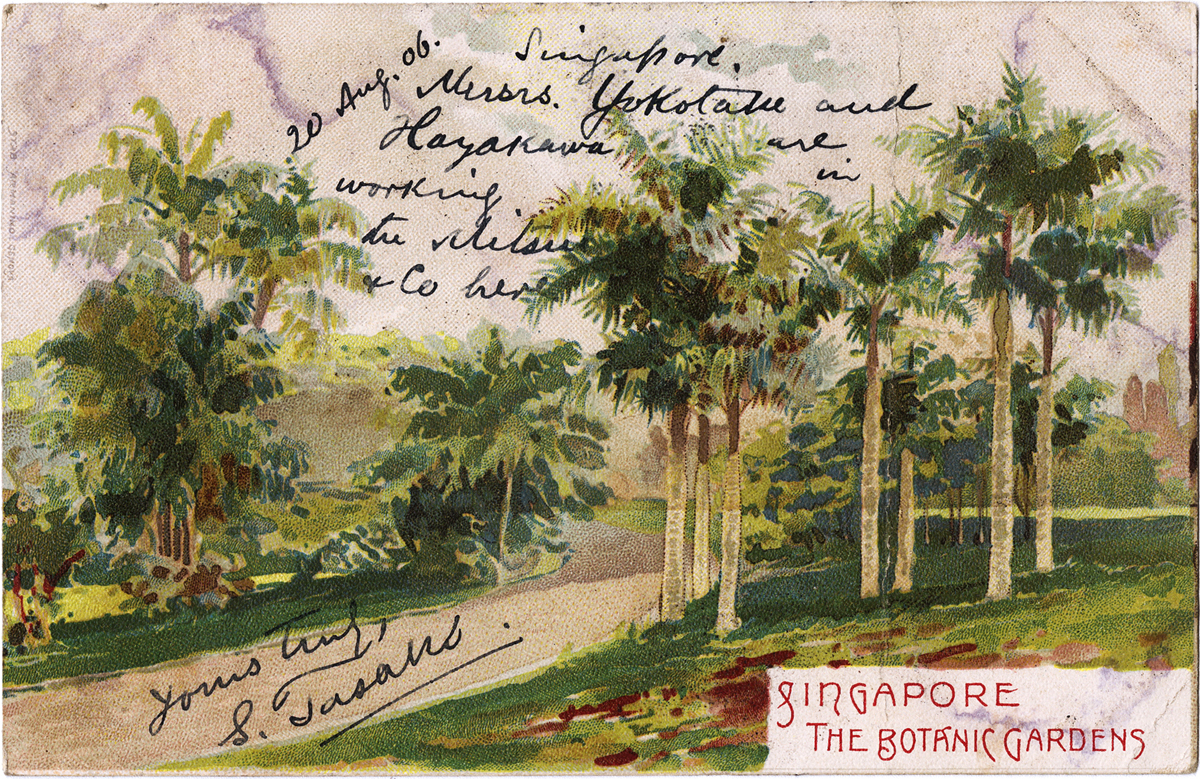 20 Aug. 06.
Singapore.
Messrs. Yokotake and
Hayakawa are
working in
the Mitsui
& Co here
Yours truly,
S.
SINGAPORE
THE BOTANIC GARDENS